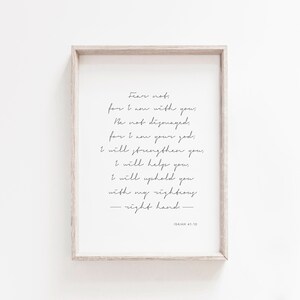 Fear not,
for I am with you;
Be not dismayed,
for I am your god;
I will strengthen you,
I will help you,
I will uphold you
with my righteous
right hand